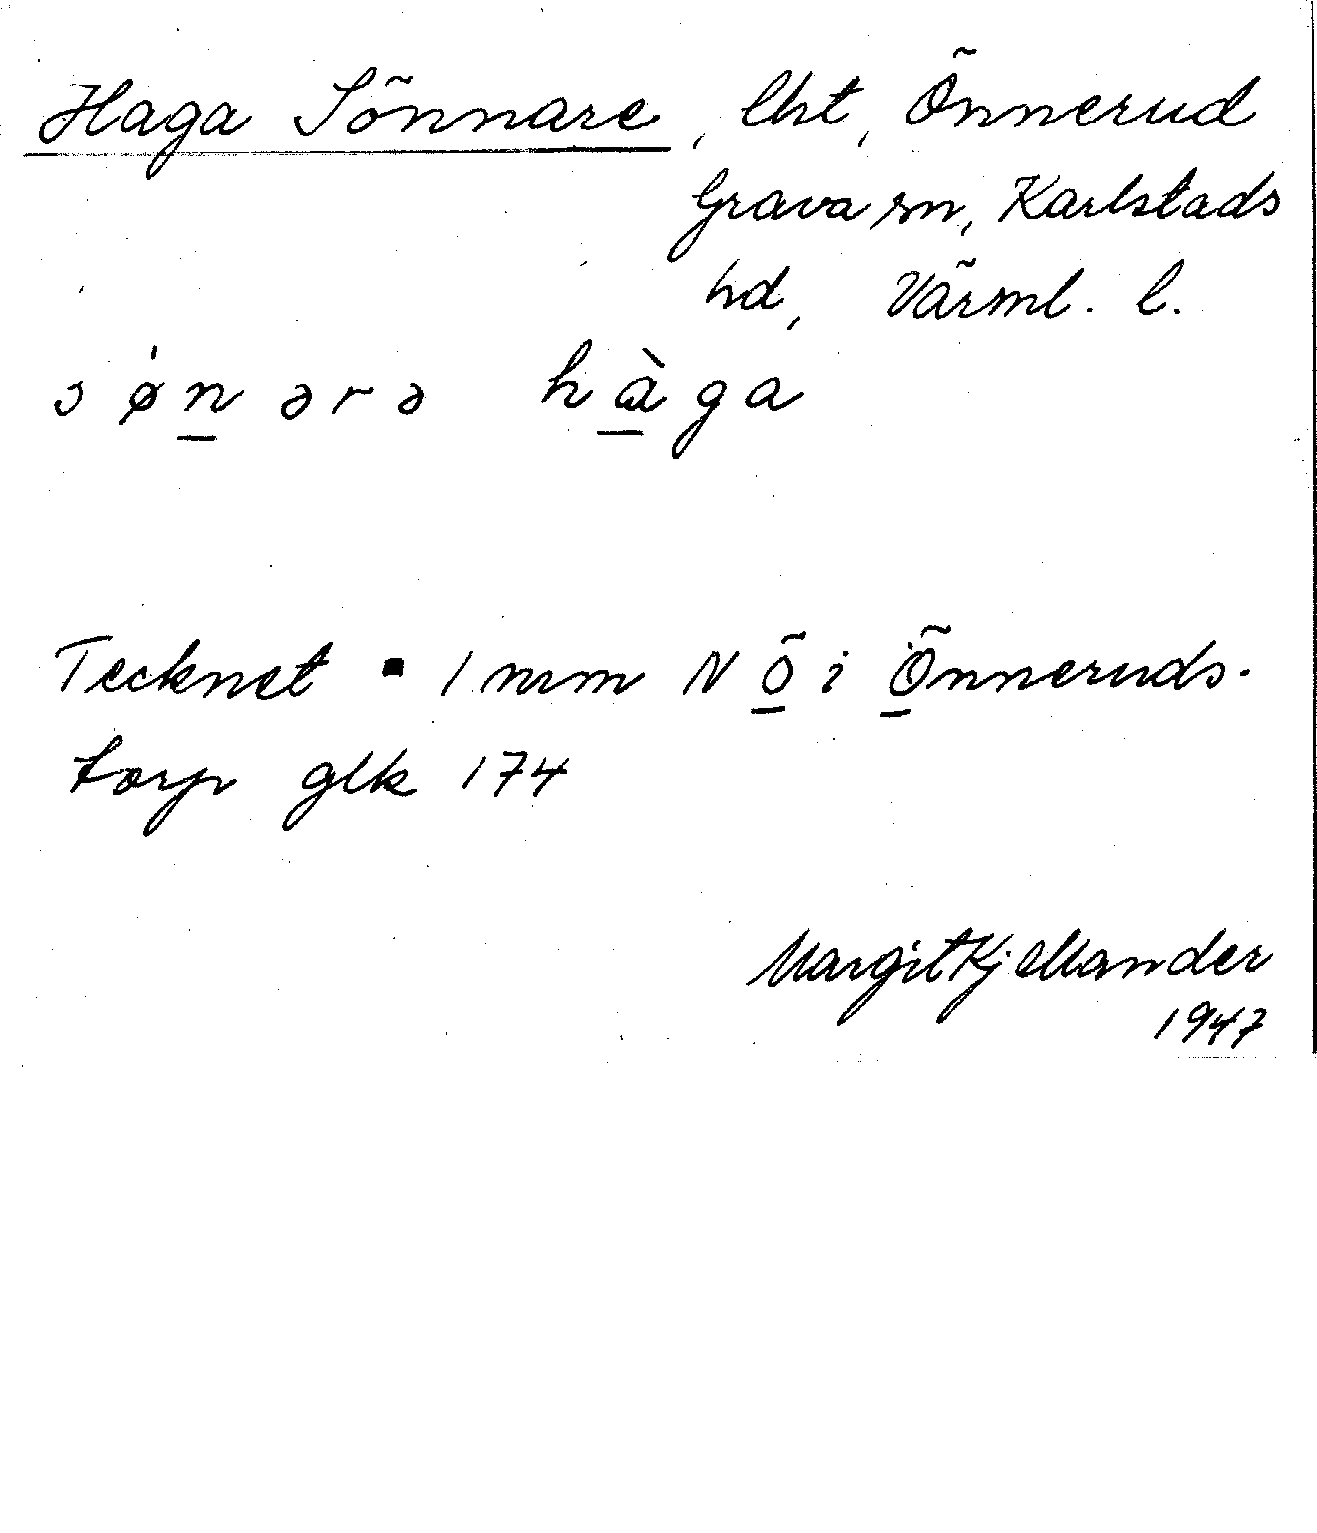 Haga Sõnnare, lht, Õnnerud
Grava sn, Karlstads
hd, Värml. l.
s ǿ n ə r ə  h à g a
Tecknet ▪ 1 mm N õ i Õnneruds-
torp glk 174
Margit Kjellander
1947